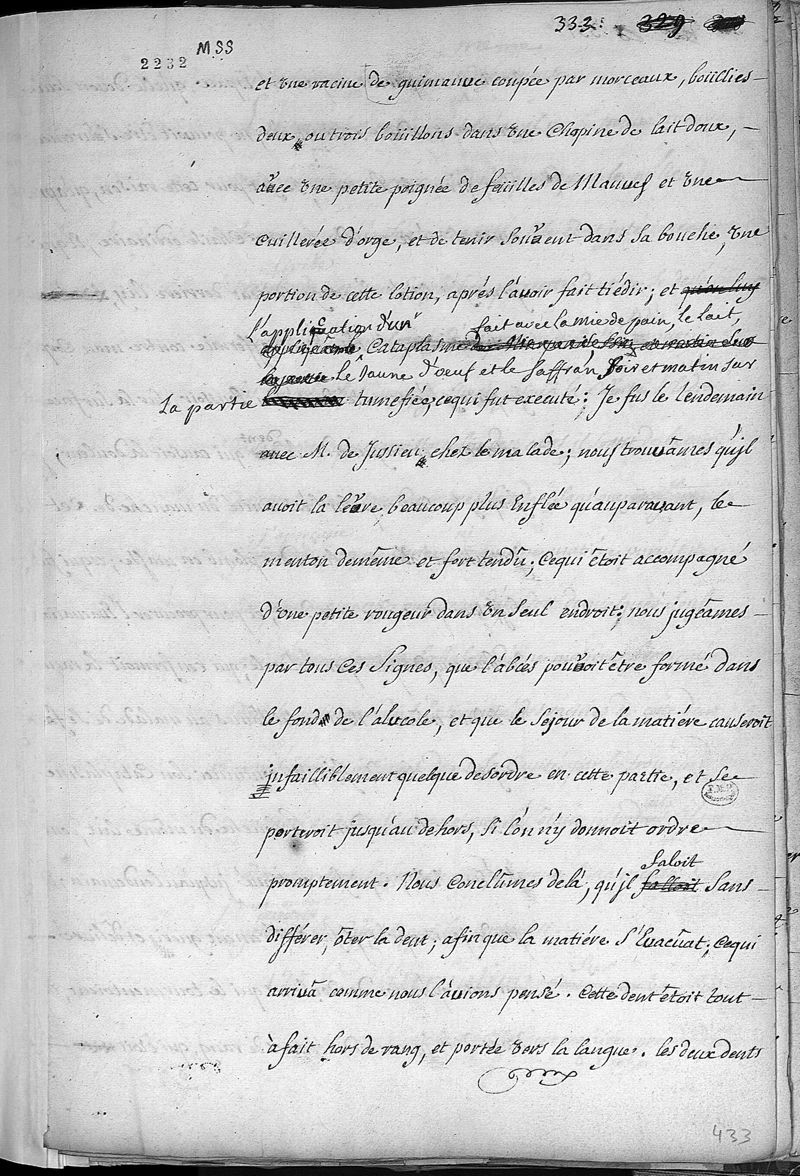 333. 329
MSS
2232
et une racine de guimauve coupée par morceaux, boüillies
deux, ou trois boüillons dans une Chopine de lait doux,
avec une petite poignée de feüilles de Mauves et une
cuillerée d'orge, et de tenir souvent dans sa bouche, une
portion de cette lotion, aprés l'avoir fait tiédir; et qu'on luy
l'application d'un fait avec la mie de pain, le lait,
Cataplasme
le Jaune d'oeuf et le saffran, soir et matin sur
la partie tumefiée, ce qui fut executé: Je fus le lendemain
avec M. de Jussieu, chez le malade; nous trouvâmes qu'jl
avoit la levre, beaucoup plus Enflée qu'auparavant, le
menton de même et fort tendu; ce qui étoit accompagné
d'une petite rougeur dans un seul endroit; nous jugeâmes
par tous ces Signes, que l'abcés pouvoit être formé dans
le fond de l'alveole, et que le séjour de la matiére causeroit
jnfailliblement quelque desordre en cette partie, et se
porteroit jusqu'au dehors, si l'on n'y donnoit ordre
promptement. Nous Conclûmes de là, qu'jl falloit faloit sans
différer, ôter la dent; afin que la matiére s'Evacuât; ce qui
arriva comme nous l'avions pensé. Cette dent étoit tout
à fait hors de rang, et portée vers la langue. les deux dents
433